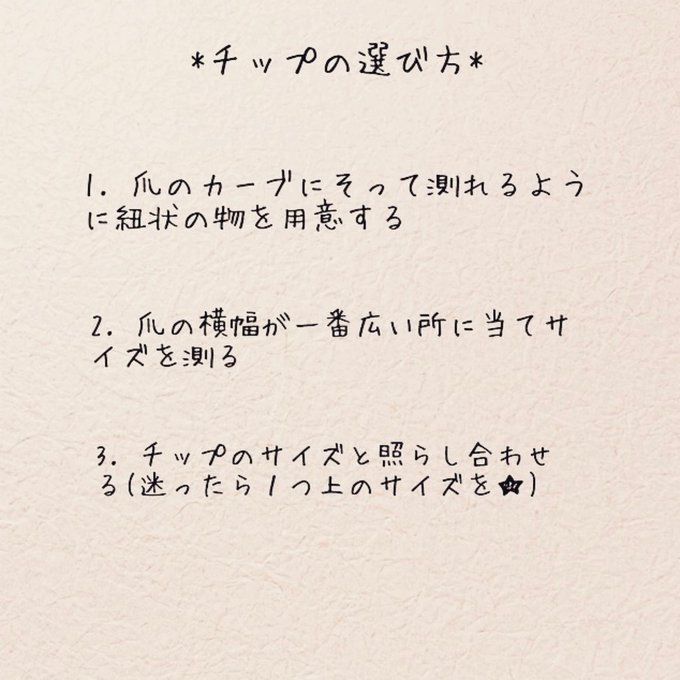 *チップの選び方*
1. 爪のカーブにそって測れるよう
に紐状の物を用意する
2. 爪の横幅が一番広い所に当てサ
イズを測る
3. チップのサイズと照らし合わせ
る(迷ったら1つ上のサイズを★)